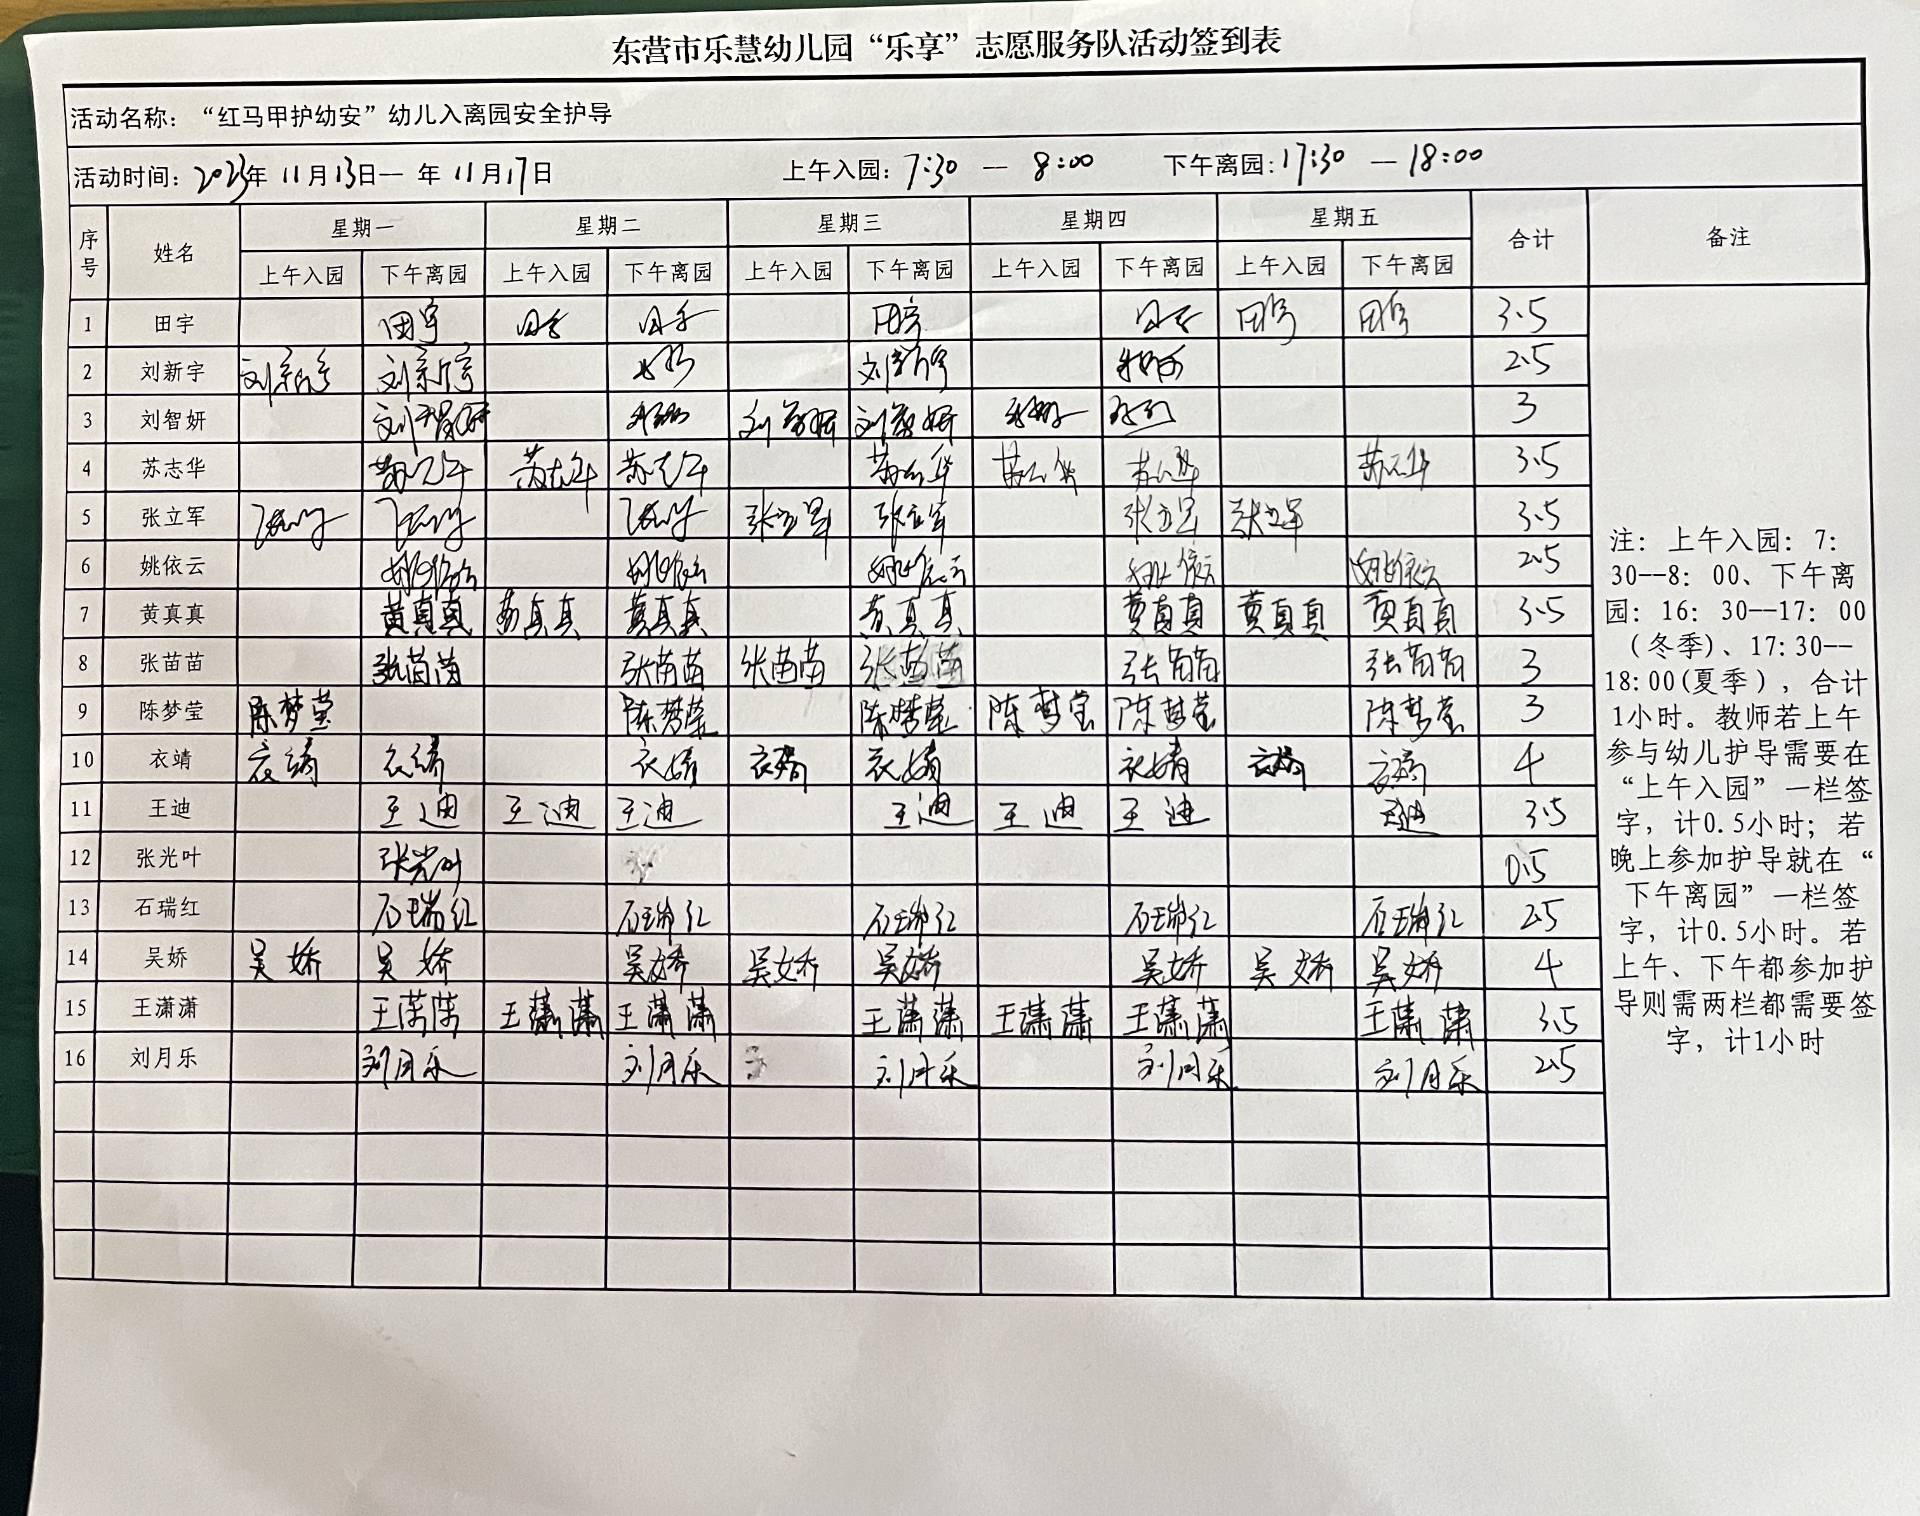 东营市乐慧幼儿园“乐享”志愿服务队活动签到表
活动名称：“红马甲护幼安”幼儿入离园安全护导
活动时间：2023年 11月13日— 年 11月17日 上午入园：7:30 — 8:00 下午离园：17:30 — 18:00
序号 姓名 星期一 星期二 星期三 星期四 星期五 合计 备注
上午入园 下午离园 上午入园 下午离园 上午入园 下午离园 上午入园 下午离园 上午入园 下午离园
1 田宇 田宇 田宇 田宇 田宇 田宇 田宇 田宇 3.5
2 刘新宇 刘新宇 刘新宇 刘新宇 2.5
3 刘智妍 刘智妍 刘智妍 刘智妍 3
4 苏志华 苏志华 苏志华 苏志华 苏志华 苏志华 苏志华 苏志华 3.5
5 张立军 张立军 张立军 张立军 张立军 3.5
6 姚依云 姚依云 姚依云 姚依云 姚依云 姚依云 2.5
7 黄真真 黄真真 黄真真 黄真真 黄真真 黄真真 黄真真 黄真真 3.5
8 张苗苗 张苗苗 张苗苗 张苗苗 张苗苗 张苗苗 张苗苗 3
9 陈梦莹 陈梦莹 陈梦莹 陈梦莹 陈梦莹 陈梦莹 陈梦莹 3
10 衣靖 衣靖 衣靖 衣靖 衣靖 衣靖 衣靖 衣靖 衣靖 4
11 王迪 王迪 王迪 王迪 王迪 王迪 王迪 王迪 3.5
12 张光叶 张光叶 0.5
13 石瑞红 石瑞红 石瑞红 石瑞红 石瑞红 石瑞红 2.5
14 吴娇 吴娇 吴娇 吴娇 吴娇 吴娇 吴娇 吴娇 吴娇 4
15 王潇潇 王潇潇 王潇潇 王潇潇 王潇潇 王潇潇 王潇潇 王潇潇 3.5
16 刘月乐 刘月乐 刘月乐 刘月乐 刘月乐 刘月乐 2.5
注：上午入园：7：
30--8：00、下午离
园：16：30--17：00
（冬季）、17:30--
18:00(夏季），合计
1小时。教师若上午
参与幼儿护导需要在
“上午入园”一栏签
字，计0.5小时；若
晚上参加护导就在“
下午离园”一栏签
字，计0.5小时。若
上午、下午都参加护
导则需两栏都需要签
字，计1小时